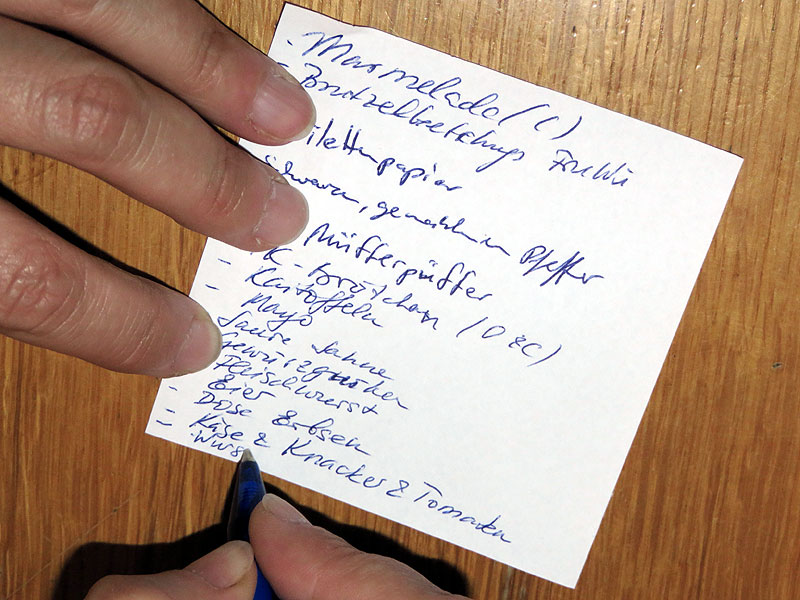 - Marmelade (C)
ilettenpapier
schwarzen, gemahlenen Pfeffer
Müffer
K-Brötchen (D & C)
- Kartoffeln
- Mayo
Saure Sahne
Gewürzgurken
Fleischwurst
- Eier
Dose Erbsen
- Käse & Knacker & Tomaten
- Wurs